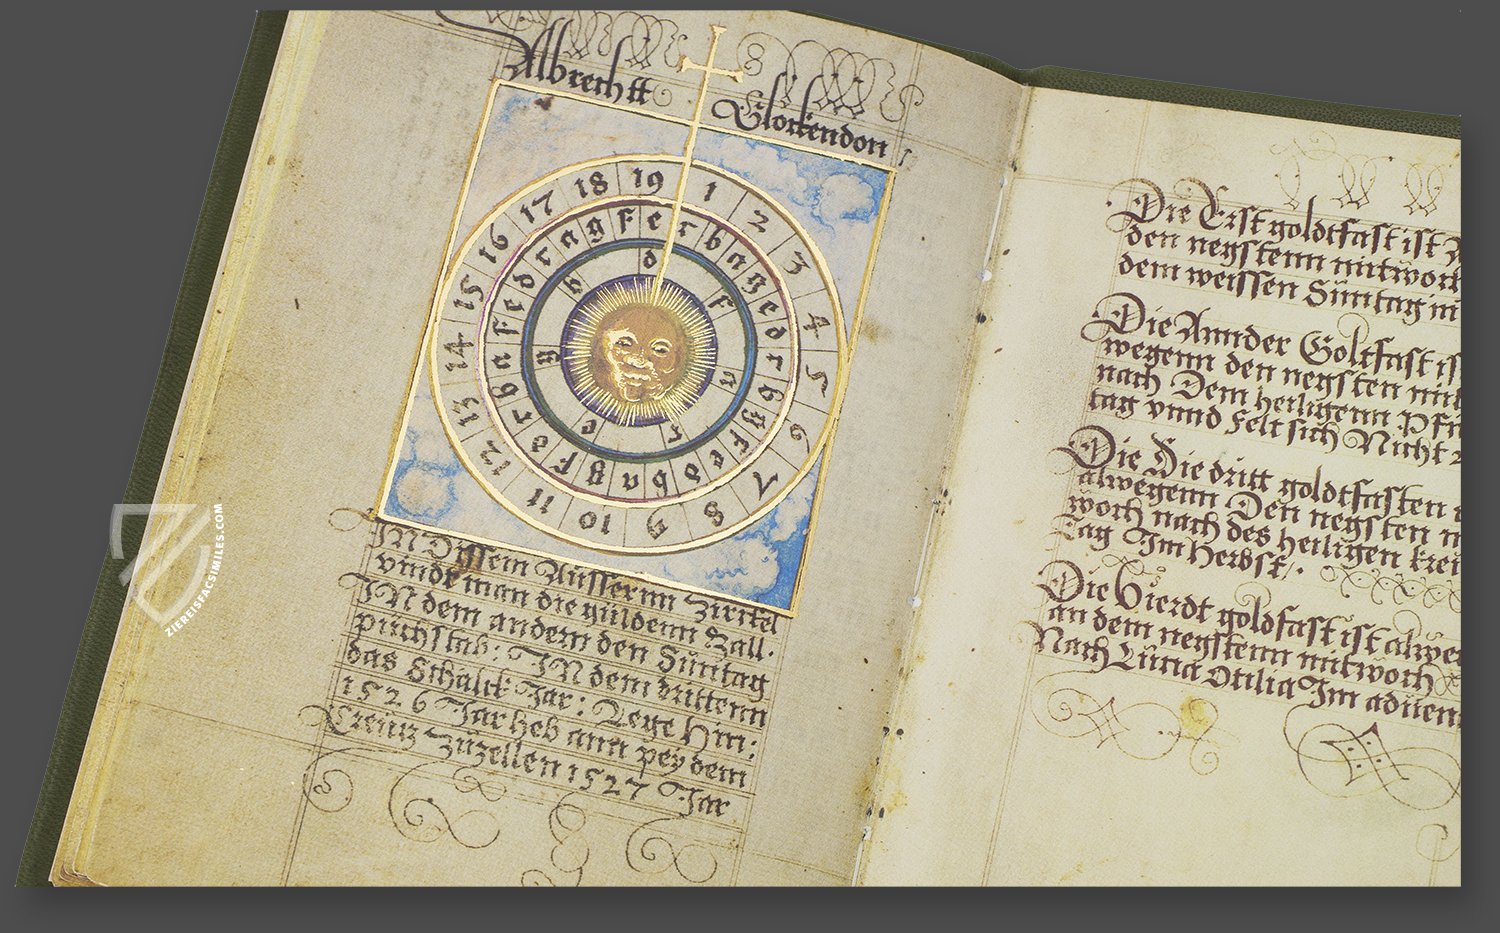 Albrechtt
Glockendon
1 2 3 4 5 6 7 8 9 10 11 12 13 14 15 16 17 18 19
IN Dissem Aussernn Zirckel
vindt man die guldenn Zall.
IN dem andern den Suntag
puchstab: IN dem drittenn
das Schalck Jar:
1526 Jar heb ann pey dem
Creutz Zuzellen 1527 Jar
Die Erst goldtfast ist
den negstenn mitwoch
dem weissen Suntag in
Die Annder Goltfast is
wegenn den negsten mit
nach Dem heiligenn Pfn
tag vnnd felt sich Nicht
Die Die dritt goldtfasten
alwegenn Den negsten m
woch nach des heiligen kreu
Tag Im Herbst.
Die Vierdt goldfast ist alweg
an dem negstenn mitwoch
Nach Lucia Otilia Im aduen
ZIEREISFACSIMILES.COM